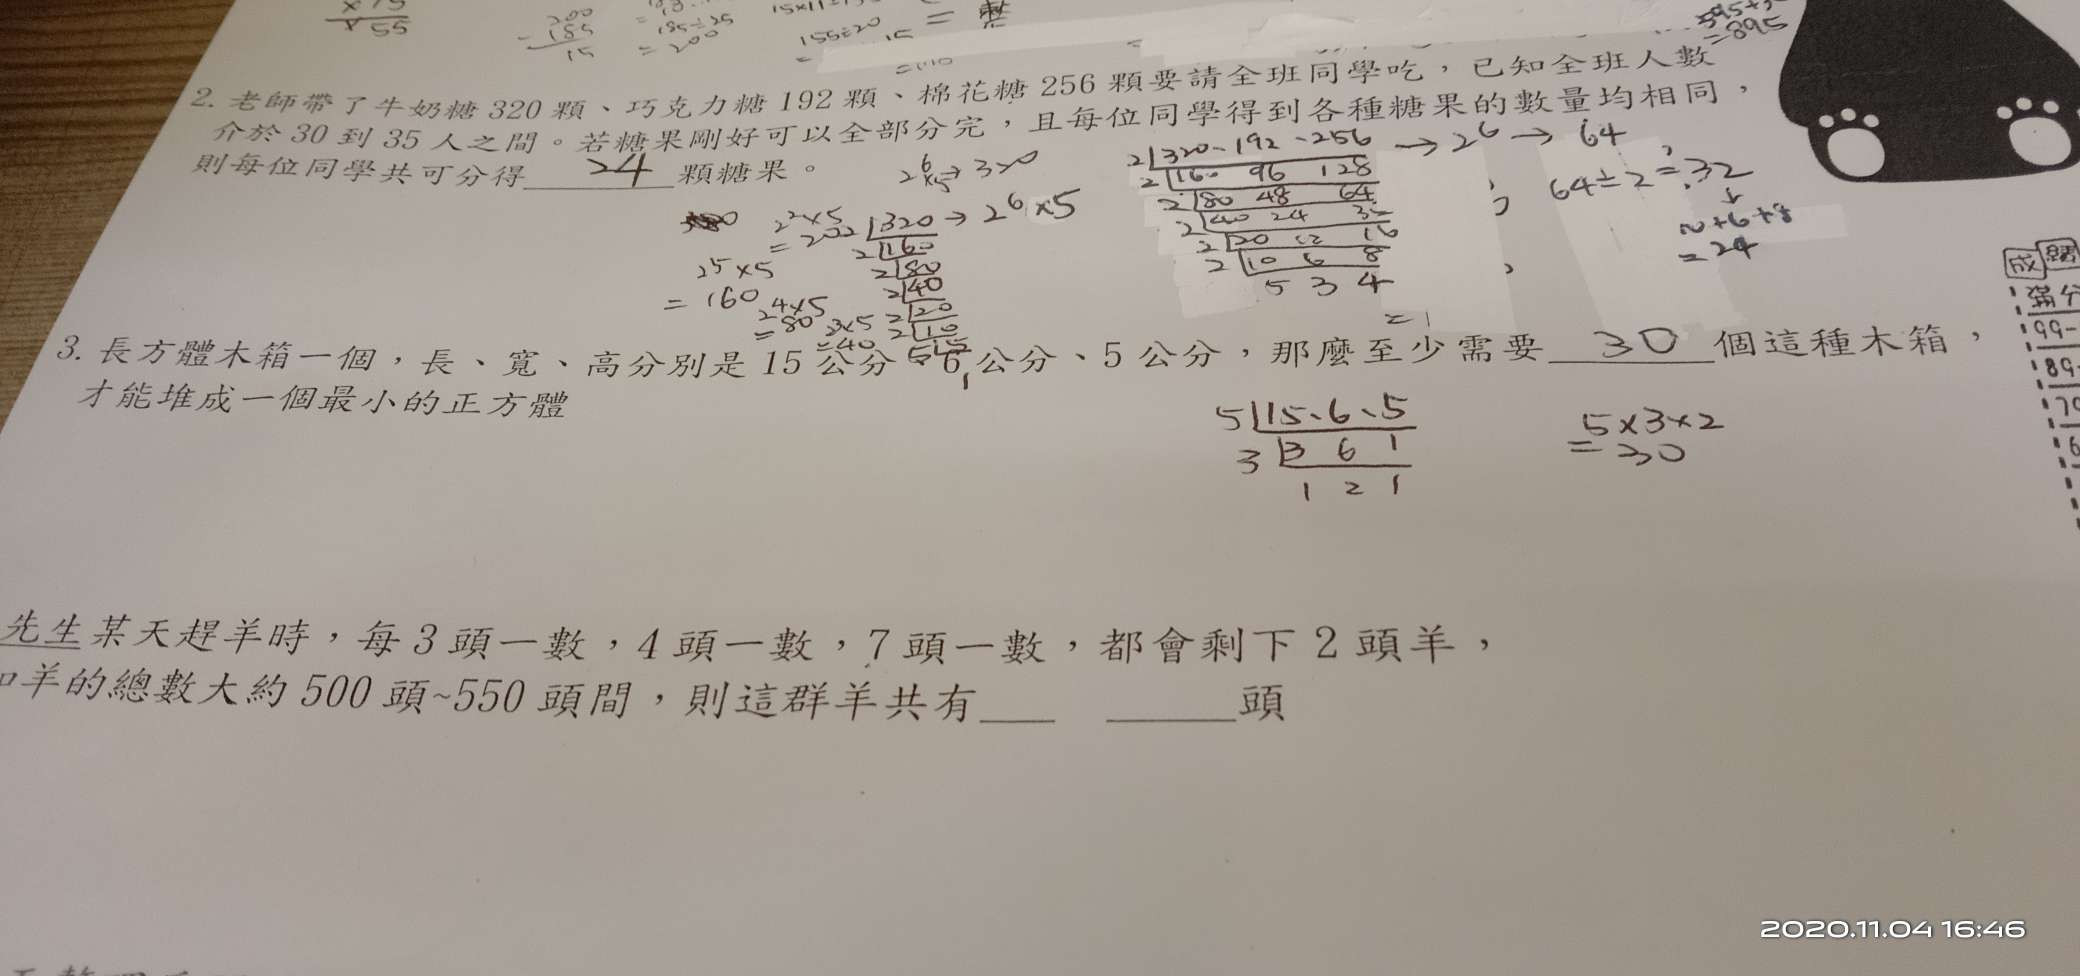 200
- 185
15
185÷25
= 200
155÷20
= 895
2. 老師帶了牛奶糖 320 顆、巧克力糖 192 顆、棉花糖 256 顆要請全班同學吃，已知全班人數
介於 30 到 35 人之間。若糖果剛好可以全部分完，且每位同學得到各種糖果的數量均相同，
則每位同學共可分得 24 顆糖果。
2 320、192、256 → 2⁶ → 64
2 160 96 128
2 80 48 64
2 40 24 32
2 20 12 16
2 10 6 8
5 3 4
64÷2=32
10+6+8
= 24
2²×5
= 20
2 320 → 2⁶×5
2 160
2 80
2 40
2 20
2 10
2⁵×5
= 160
2⁴×5
= 80
2³×5
= 40
成績
滿分
3. 長方體木箱一個，長、寬、高分別是 15 公分、6 公分、5 公分，那麼至少需要 30 個這種木箱，
才能堆成一個最小的正方體
5 15、6、5
3 3 6 1
1 2 1
5×3×2
= 30
先生某天趕羊時，每 3 頭一數，4 頭一數，7 頭一數，都會剩下 2 頭羊，
羊的總數大約 500 頭~550 頭間，則這群羊共有 頭
2020.11.04 16:46